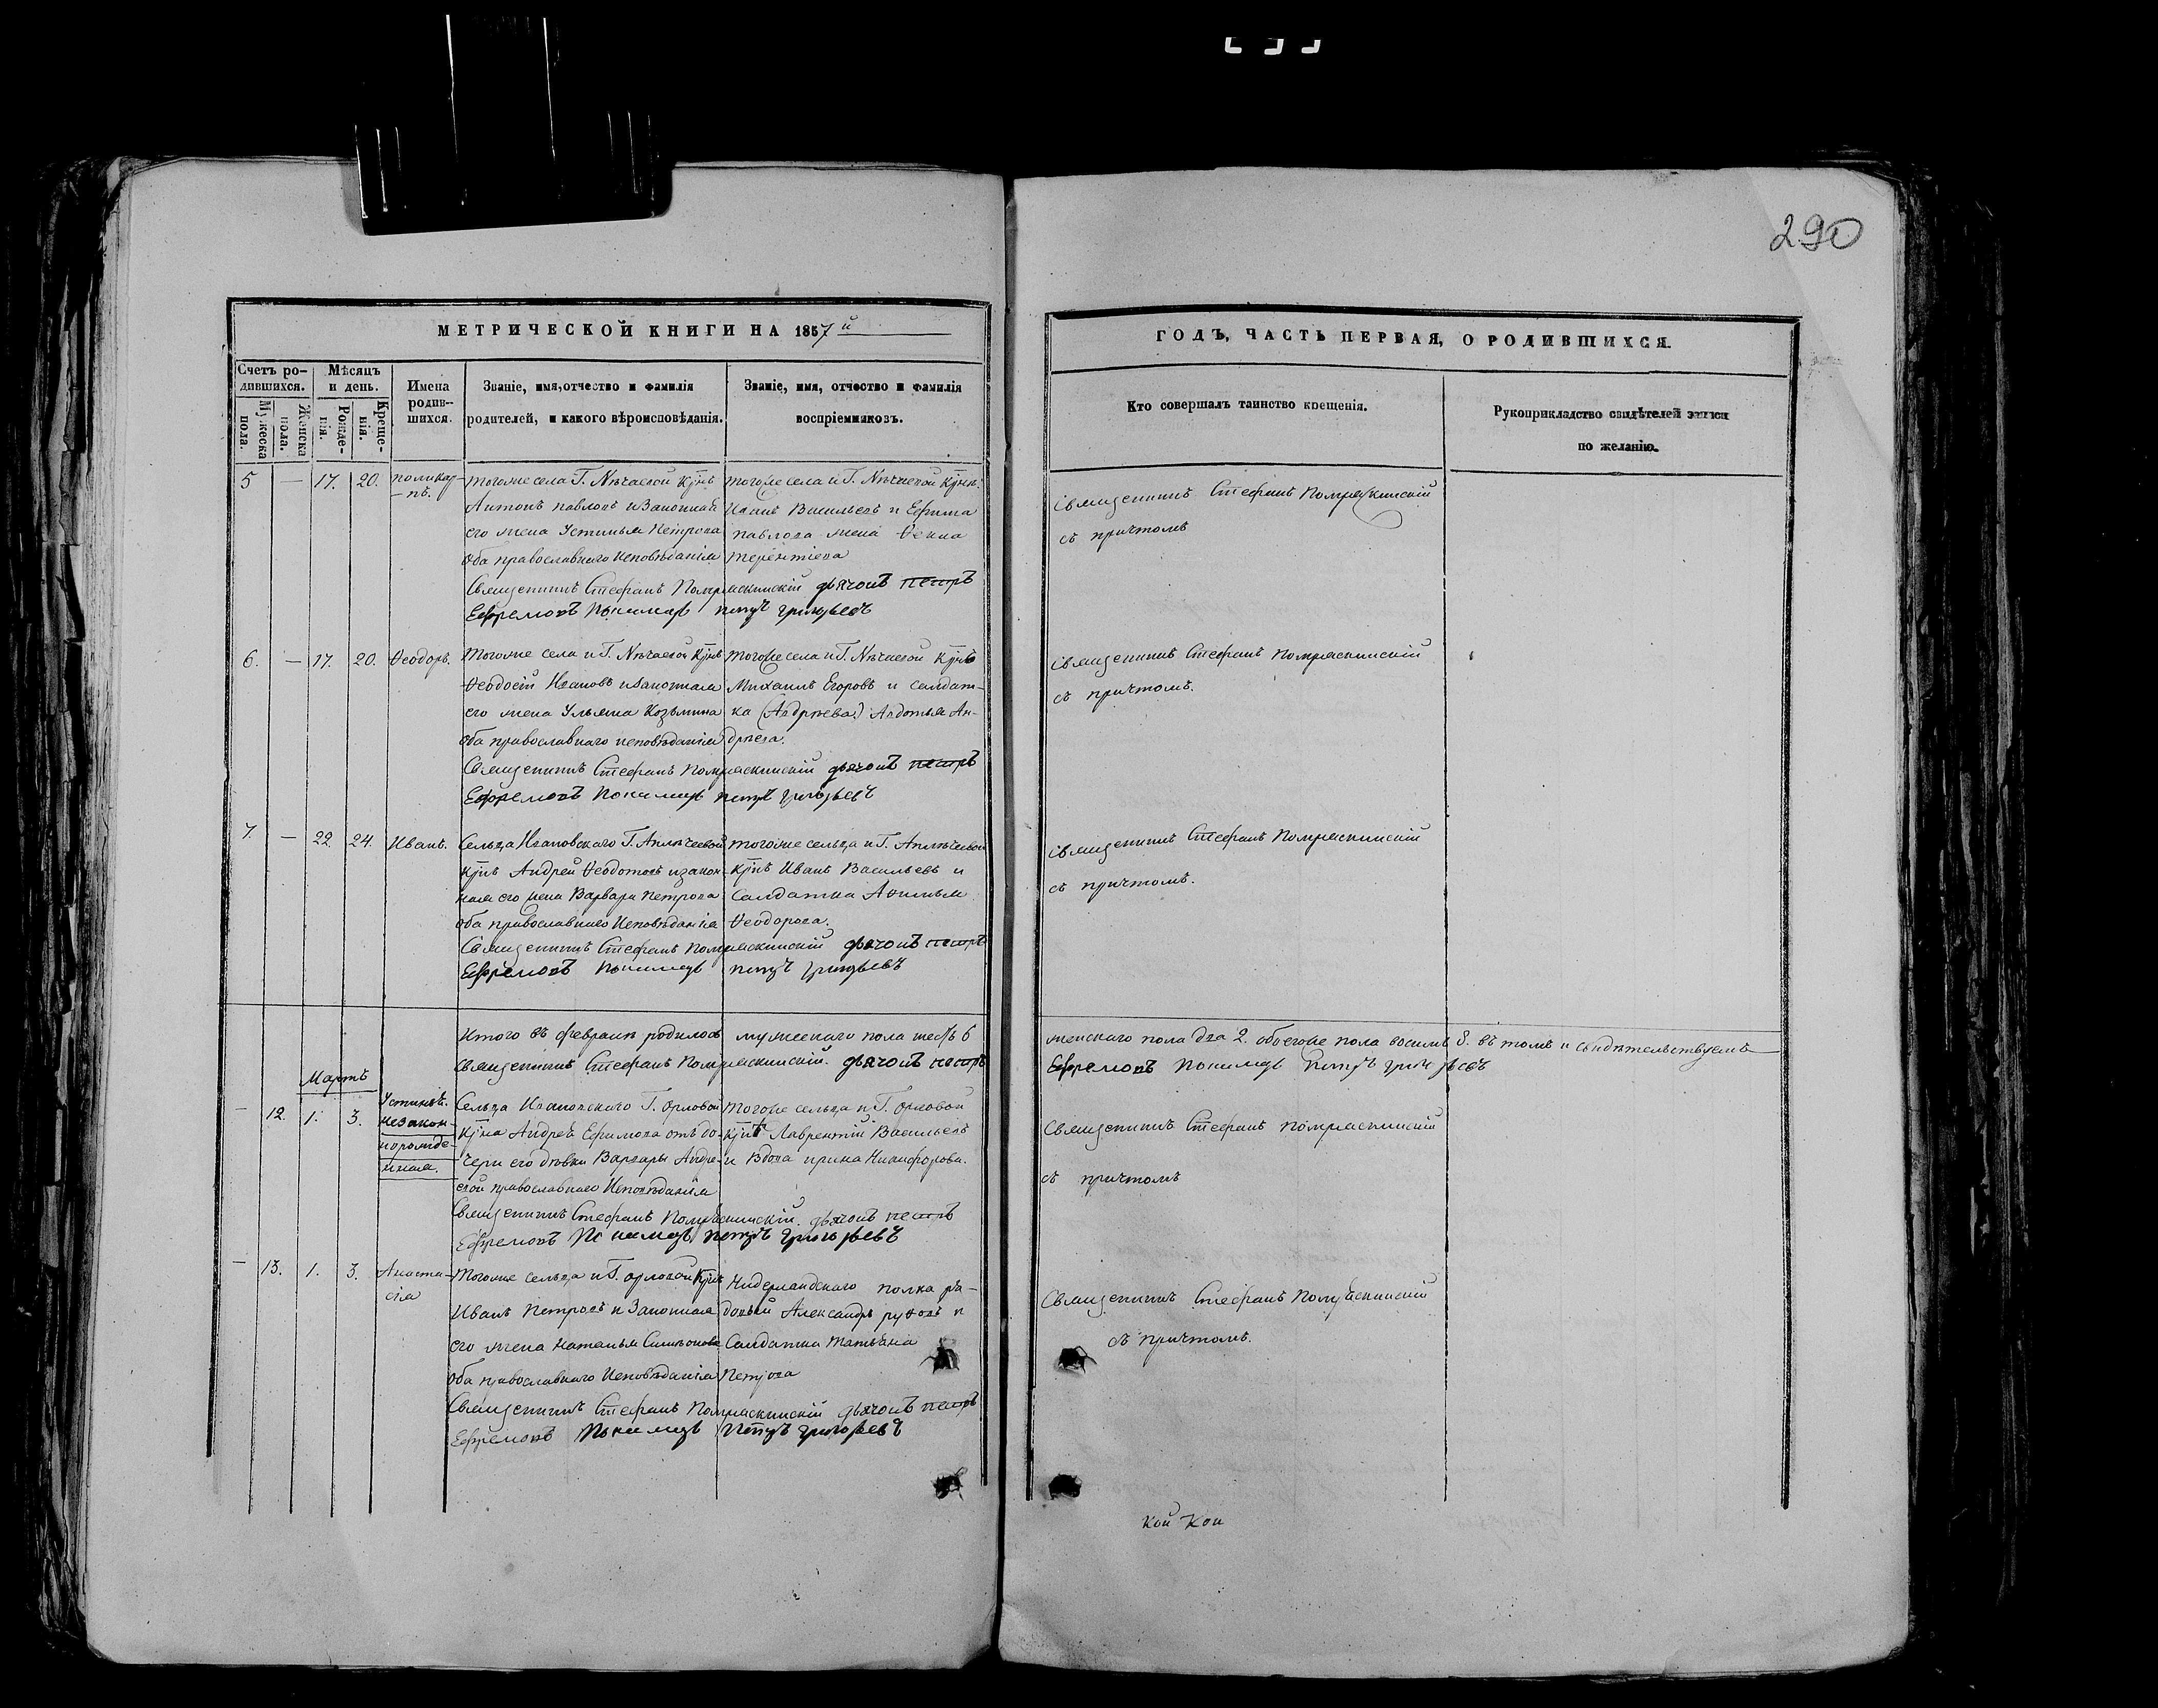 290
МЕТРИЧЕСКОЙ КНИГИ НА 1857й
ГОДЪ, ЧАСТЬ ПЕРВАЯ, О РОДИВШИХСЯ.
Счетъ ро-
дившихся.
Мужеска
пола.
Женска
пола.
Мѣсяцъ
и день.
Рожде-
нія.
Креще-
нія.
Имена
родив-
шихся.
Званіе, имя, отчество и фамилія
родителей, и какого вѣроисповѣданія.
Званіе, имя, отчество и фамилія
воспріемниковъ.
Кто совершалъ таинство крещенія.
Рукоприкладство свидѣтелей записи
по желанію.
5 — 17. 20. Поликар-
-пъ.
Тогоже села Г. Нѣчаевой
Антонъ Павловъ и Законная
его жена Устинья Петрова
оба православнаго исповѣданія
Тогоже села и Г. Нѣчаевой
Иванъ Васильевъ и Ефима
Павлова жена Ѳекла
Терентіева
Священникъ Стефанъ дьячокъ Петръ
Ефремовъ Пономарь Петръ Григорьевъ
Священникъ Стефанъ
съ причтомъ
6. — 17. 20. Ѳеодоръ.
Тогоже села и Г. Нѣчаевой
Ѳеодосій Ивановъ и законная
его жена Ульяна Козьмина
оба православнаго исповѣданія
Тогоже села и Г. Нѣчаевой
Михаилъ Егоровъ и салдат-
ка (Андрѣева) Авдотья Ан-
дрѣева.
Священникъ Стефанъ дьячокъ Петръ
Ефремовъ Пономарь Петръ Григорьевъ
Священникъ Стефанъ
съ причтомъ.
7. — 22 24. Иванъ.
Сельца Ивановскаго Г.
Андрей Ѳеодотовъ и закон-
ная его жена Варвара Петрова
оба православнаго исповѣданія
Тогоже сельца и Г.
Иванъ Васильевъ и
Салдатка
Ѳеодорова.
Священникъ Стефанъ дьячокъ Петръ
Ефремовъ Пономарь Петръ Григорьевъ
Священникъ Стефанъ
съ причтомъ.
Итого въ февралѣ родилось мужескаго пола шесть 6
женскаго пола два 2. обоегоже пола восемь 8. въ томъ и свидѣтельствуемъ
Священникъ Стефанъ дьячокъ Петръ
Ефремовъ Пономарь Петръ Григорьевъ
Мартъ
— 12. 1. 3.
незакон-
норожде-
нная.
Сельца Ивановскаго Г. Орловой
Андрея Ефимова отъ до-
чери его дѣвки Варвары Андре-
евой православнаго исповѣданія
Тогоже сельца и Г. Орловой
Лаврентій Васильевъ
и Вдова Ирина Никифорова.
Священникъ Стефанъ дьячокъ Петръ
Ефремовъ Пономарь Петръ Григорьевъ
Священникъ Стефанъ
съ причтомъ
— 13. 1. 3. Анаста-
сія
Тогоже сельца и Г. Орловой
Иванъ Петровъ и Законная
его жена Наталья Симеонова
оба православнаго исповѣданія
Нидерландскаго полка ря-
довый Александръ и
Салдатка Татьяна
Петрова
Священникъ Стефанъ дьячокъ Петръ
Ефремовъ Пономарь Петръ Григорьевъ
Священникъ Стефанъ
съ причтомъ.